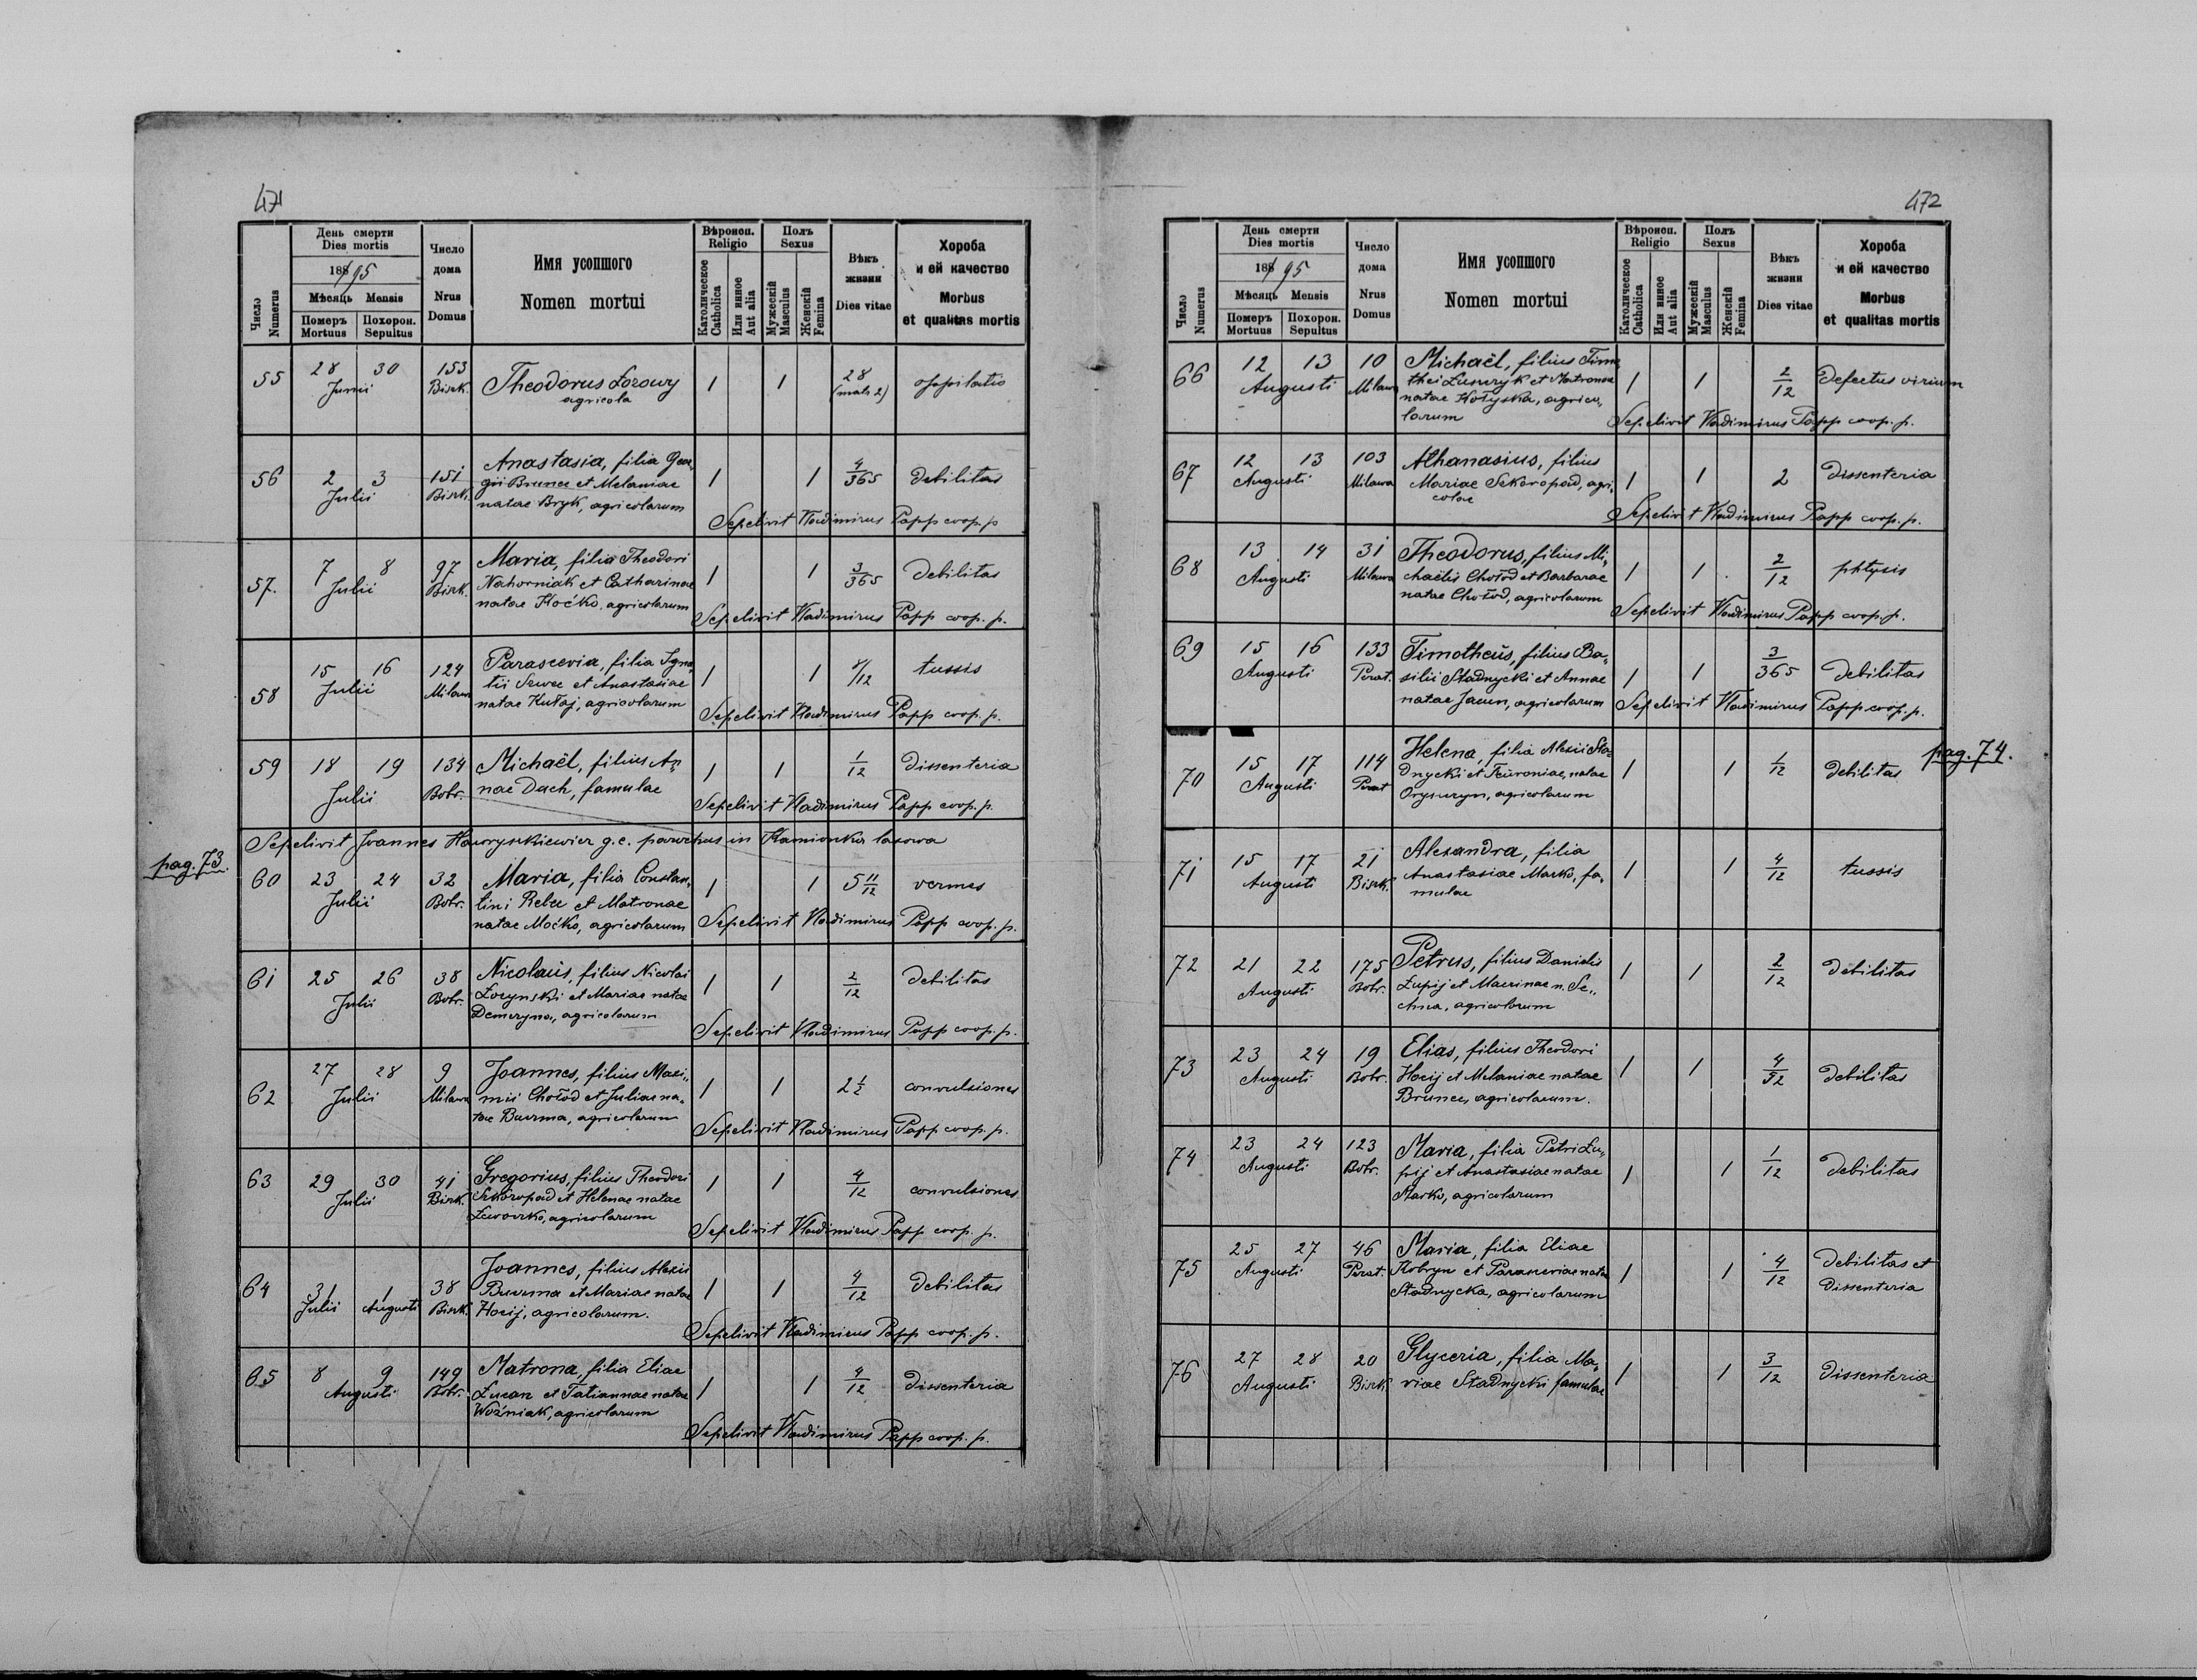 471
Число
Numerus
День смерти
Dies mortis
188/95
Мѣсяць Mensis
Померъ
Mortuus
Похорон.
Sepultus
Число
дома
Nrus
Domus
Имя усопшого
Nomen mortui
Вѣроисп.
Religio
Католическое
Catholica
Или инное
Aut alia
Полъ
Sexus
Мужескій
Masculus
Женскій
Femina
Вѣкъ
жизни
Dies vitae
Хороба
и ей качество
Morbus
et qualitas mortis
55 28 30 153 Theodorus Łozowy 1 1 28 oppilatio
Junii Bisrk. agricola
56 2 3 151 Anastasia, filia Geor„ 1 1 4/365 debilitas
Julii Bisrk. gii Brunec et Melaniae
natae Bryk, agricolarum
Sepelivit Vladimirus Papp coop. p
57. 7 8 97 Maria, filia Theodori 1 1 3/365 debilitas
Julii Bisrk. Nahorniak et Catharinae
natae Hoćko, agricolarum
Sepelivit Vladimirus Papp coop. p.
58 15 16 124 Parascevia, filia Igna„ 1 1 /12 tussis
Julii Milawa tii Sewec et Anastasiae
natae Kułaj, agricolarum
Sepelivit Vladimirus Papp coop. p.
59 18 19 134 Michaël, filius An„ 1 1 1/12 dissenteria
Julii Bobr. nae Duch, famulae
Sepelivit Vladimirus Papp coop. p.
Sepelivit Joannes Hawryszkiewicz g. c. parochus in Kamionka lasowa
pag. 73.
60 23 24 32 Maria, filia Constan„ 1 1 5 11/12 vermes
Julii Bobr. tini Relec et Matronae
natae Moćko, agricolarum
Sepelivit Vladimirus Papp coop. p.
61 25 26 38 Nicolaüs, filius Nicolai 1 1 2/12 debilitas
Julii Bobr. Łozynski et Mariae natae
agricolarum
Sepelivit Vladimirus Papp coop. p.
62 27 28 9 Joannes, filius Maxi„ 1 1 2 1/2 convulsiones
Julii Milawa mii Chołod et Juliae na„
tae Buurma, agricolarum
Sepelivit Vladimirus Papp coop. p.
63 29 30 41 Gregorius, filius Theodori 1 1 4/12 convulsiones
Julii Bisrk. Szkoropad et Helenae natae
agricolarum
Sepelivit Vladimirus Papp coop. p.
64 31 1 38 Joannes, filius Alexii 1 1 4/12 debilitas
Julii Augusti Bisrk. Buurma et Mariae natae
Hocij, agricolarum.
Sepelivit Vladimirus Papp coop. p.
65 8 9 149 Matrona, filia Eliae 1 1 4/12 dissenteria
Augusti Bobr. Łucan et Tatiannae natae
Woźniak, agricolarum
Sepelivit Vladimirus Papp coop. p.
472
Число
Numerus
День смерти
Dies mortis
188/95
Мѣсяць Mensis
Померъ
Mortuus
Похорон.
Sepultus
Число
дома
Nrus
Domus
Имя усопшого
Nomen mortui
Вѣроисп.
Religio
Католическое
Catholica
Или инное
Aut alia
Полъ
Sexus
Мужескій
Masculus
Женскій
Femina
Вѣкъ
жизни
Dies vitae
Хороба
и ей качество
Morbus
et qualitas mortis
66 12 13 10 Michaël, filius Timo 1 1 2/12 defectus virium
Augusti Milawa thei et Matronae
natae Hołyska, agrico„
larum
Sepelivit Vladimirus Papp coop. p.
67 12 13 103 Athanasius, filius 1 1 2 dissenteria
Augusti Milawa Mariae Szkoropad, agri„
colae
Sepelivit Vladimirus Papp coop. p.
68 13 14 31 Theodorus, filius Mi„ 1 1 2/12 phtysis
Augusti Milawa chaëlis Chołod et Barbarae
natae Chołod, agricolarum
Sepelivit Vladimirus Papp coop. p.
69 15 16 133 Timotheüs, filius Ba„ 1 1 3/365 debilitas
Augusti Perat. silii Stadnycki et Annae
natae Jacun, agricolarum
Sepelivit Vladimirus Papp coop. p.
70 15 17 114 Helena, filia Alexii Sta„ 1 1 1/12 debilitas
Augusti Perat dnycki et Feuroniae, natae
agricolarum
pag. 74.
71 15 17 21 Alexandra, filia 1 1 4/12 tussis
Augusti Bisrk. Anastasiae Marko, fa„
mulae
72 21 22 175 Petrus, filius Danielis 1 1 2/12 debilitas
Augusti Bobr. Łupij et Macrinae n. Se„
agricolarum
73 23 24 19 Elias, filius Theodori 1 1 4/52 debilitas
Augusti Bobr. Hocij et Melaniae natae
Brunec, agricolarum.
74 23 24 123 Maria, filia Petri Łu„ 1 1 1/12 debilitas
Augusti Bobr. pij et Anastasiae natae
Marko, agricolarum
75 25 27 46 Maria, filia Eliae 1 1 4/12 debilitas et
Augusti Perat. Kobryn et Parasceviae natae dissenteria
Stadnycka, agricolarum
76 27 28 20 Glyceria, filia Ma„ 1 1 3/12 dissenteria
Augusti Bisrk. riae Stadnycki famulae